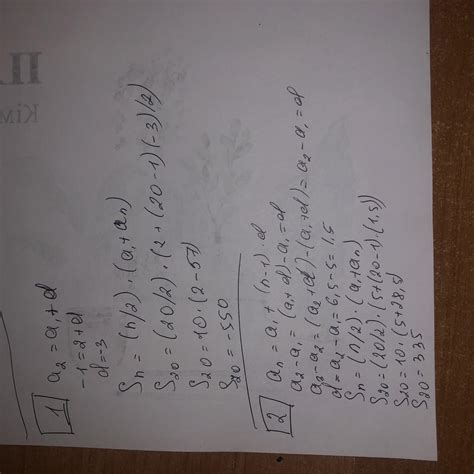 1
a₂ = a₁ + d
-1 = 2 + d
d = -3
Sn = (n/2) · (a₁ + an)
S₂₀ = (20/2) · (2 + (20-1)(-3)/2)
S20 = 10 · (2 - 57)
S20 = -550
2
an = a₁ + (n-1) · d
a₂ - a₁ = (a₁ + d) - a₁ = d
a₃ - a₂ = (a₂ + d) - (a₁ + d) = a₂ - a₁ = d
d = a₂ - a₁ = 6,5 - 5 = 1,5
Sn = (n/2) · (a₁ + an)
S20 = (20/2) · (5 + (20-1)(1,5))
S20 = 10 · (5 + 28,5)
S20 = 335
П
Кім